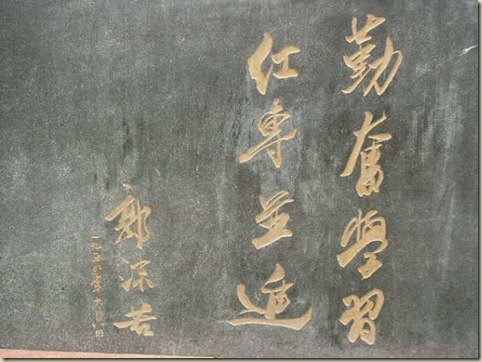 勤奮學習
紅專並進
郭沫若